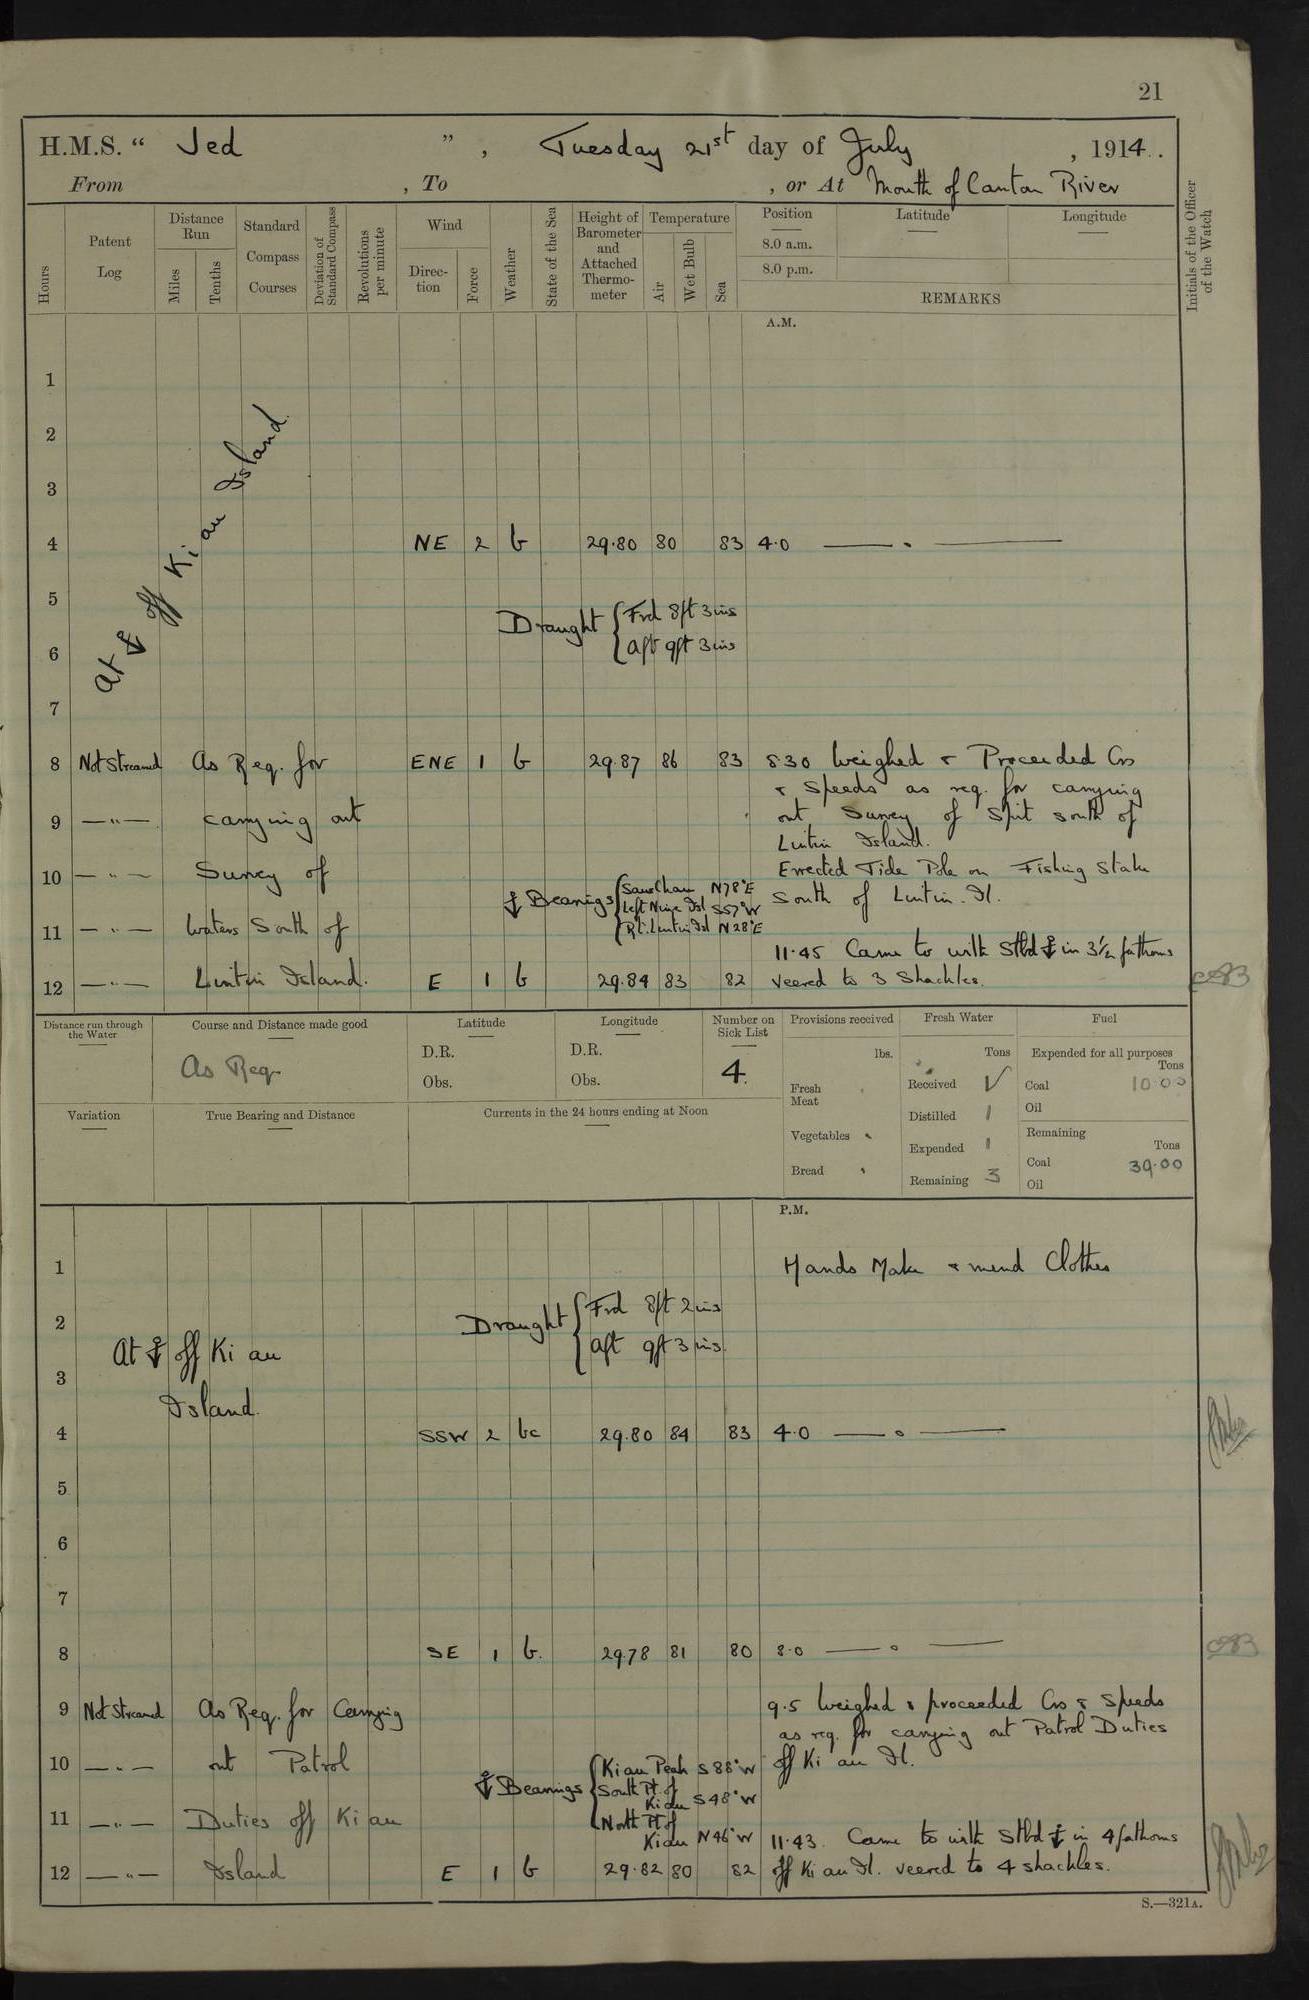 21
H.M.S. “ Jed ” , Tuesday 21st day of July , 1914 .
From , To , or At Mouth of Canton River
Hours
Patent Log
Distance Run
Miles
Tenths
Standard Compass Courses
Deviation of Standard Compass
Revolutions per minute
Wind
Direc- tion
Force
Weather
State of the Sea
Height of Barometer and Attached Thermo- meter
Temperature
Air
Wet Bulb
Sea
Position
8.0 a.m.
8.0 p.m.
Latitude
Longitude
REMARKS
Initials of the Officer of the Watch
A.M.
1
2
3
At ⚓ off Ki au Island.
4 NE 2 b 29.80 80 83 4.0 — . —
5
Draught { Frd 8ft 3ins
aft 9ft 3ins
6
7
8 Not Streamed As Req. for ENE 1 b 29.87 86 83 830 Weighed & Proceeded Cos
& Speeds as req. for carrying
9 — " — carrying out out Survey of Spit south of
Lintin Island.
10 — " — Survey of Errected Tide Pole on Fishing Stake
South of Lintin Il.
⚓ Bearings { N78°E
Left Isl S57°W
Rt. Lintin Isl N28°E
11 — " — Waters South of
11.45 Came to with Stbd ⚓ in 3½ fathoms
12 — " — Lintin Island. E 1 b 29.84 83 82 veered to 3 Shackles.
Distance run through the Water
Course and Distance made good
As Req
Latitude
D.R.
Obs.
Longitude
D.R.
Obs.
Number on Sick List
4.
Provisions received
lbs.
Fresh Meat
Vegetables
Bread
Fresh Water
Tons
Received √
Distilled 1
Expended 1
Remaining 3
Fuel
Expended for all purposes
Tons
Coal 10.00
Oil
Remaining
Tons
Coal 39.00
Oil
Variation
True Bearing and Distance
Currents in the 24 hours ending at Noon
P.M.
1 Hands Make & mend Clothes
2 Draught { Frd 8ft 2ins
aft 9ft 3ins.
At ⚓ off Ki au
3
Island.
4 SSW 2 bc 29.80 84 83 4.0 — o —
5
6
7
8 SE 1 b. 29.78 81 80 8.0 — o —
9 Not Streamed As Req. for Carrying 9.5 Weighed & proceeded Cos & Speeds
as req. for carrying out Patrol Duties
10 — " — out Patrol off Ki au Il.
⚓ Bearings { Ki au Peak S88°W
South Pt of Ki au S48°W
North Pt of Ki au N46°W
11 — " — Duties off Ki au 11.43. Came to with Stbd ⚓ in 4 fathoms
12 — " — Island E 1 b 29.82 80 82 off Ki au Il. veered to 4 shackles.
S.—321A.